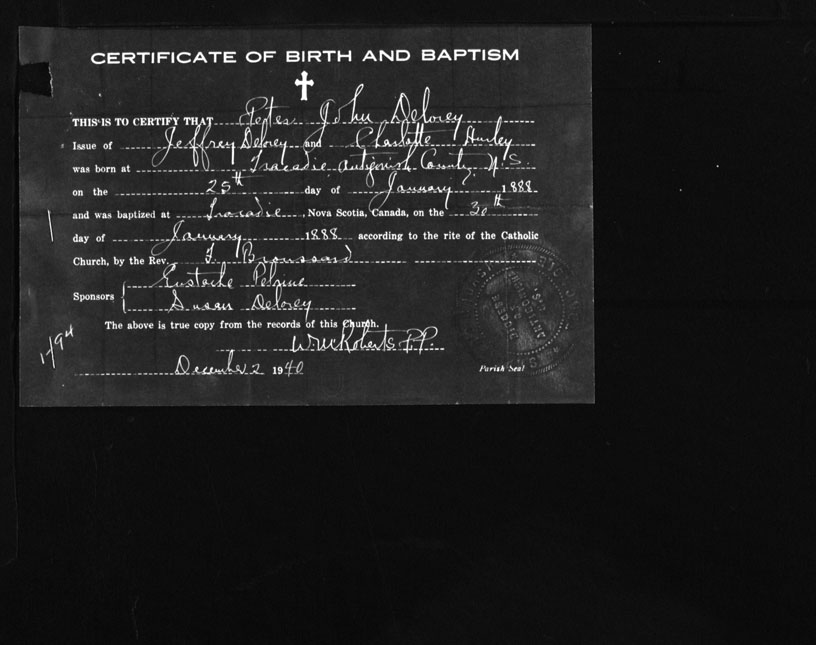 CERTIFICATE OF BIRTH AND BAPTISM
THIS IS TO CERTIFY THAT Peter John Delorey
Issue of Jeffrey Delorey and Charlotte Hurley
was born at Tracadie, Antigonish County, N.S.
on the 25th day of January 1888
and was baptized at Tracadie, Nova Scotia, Canada, on the 30th
day of January 1888 according to the rite of the Catholic
Church, by the Rev. F. Broussard
Sponsors
Eustache Pelrine
Susan Delorey
The above is true copy from the records of this Church.
Roberts P.P.
December 2 1940
Parish Seal